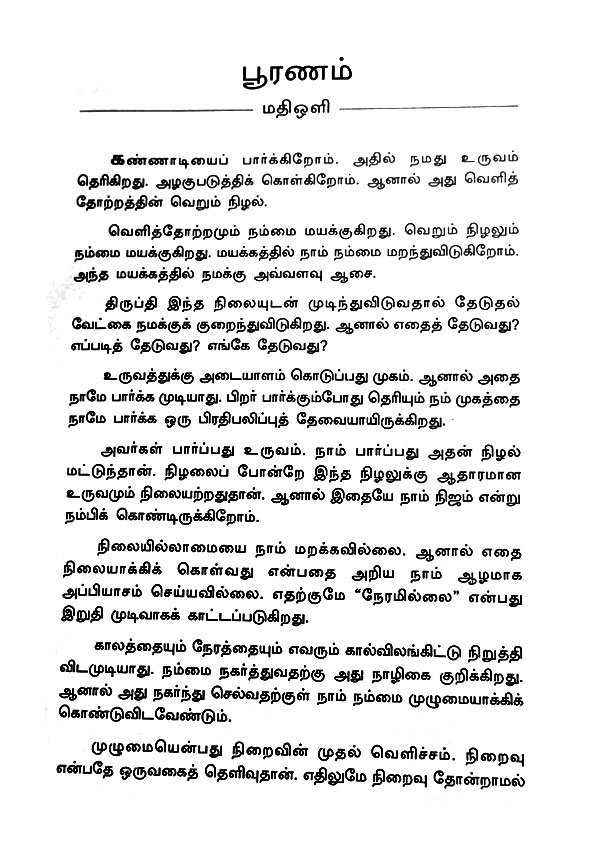 பூரணம்
மதிஒளி
கண்ணாடியைப் பார்க்கிறோம். அதில் நமது உருவம்
தெரிகிறது. அழகுபடுத்திக் கொள்கிறோம். ஆனால் அது வெளித்
தோற்றத்தின் வெறும் நிழல்.
வெளித்தோற்றமும் நம்மை மயக்குகிறது. வெறும் நிழலும்
நம்மை மயக்குகிறது. மயக்கத்தில் நாம் நம்மை மறந்துவிடுகிறோம்.
அந்த மயக்கத்தில் நமக்கு அவ்வளவு ஆசை.
திருப்தி இந்த நிலையுடன் முடிந்துவிடுவதால் தேடுதல்
வேட்கை நமக்குக் குறைந்துவிடுகிறது. ஆனால் எதைத் தேடுவது?
எப்படித் தேடுவது? எங்கே தேடுவது?
உருவத்துக்கு அடையாளம் கொடுப்பது முகம். ஆனால் அதை
நாமே பார்க்க முடியாது. பிறர் பார்க்கும்போது தெரியும் நம் முகத்தை
நாமே பார்க்க ஒரு பிரதிபலிப்புத் தேவையாயிருக்கிறது.
அவர்கள் பார்ப்பது உருவம். நாம் பார்ப்பது அதன் நிழல்
மட்டுந்தான். நிழலைப் போன்றே இந்த நிழலுக்கு ஆதாரமான
உருவமும் நிலையற்றதுதான். ஆனால் இதையே நாம் நிஜம் என்று
நம்பிக் கொண்டிருக்கிறோம்.
நிலையில்லாமையை நாம் மறக்கவில்லை. ஆனால் எதை
நிலையாக்கிக் கொள்வது என்பதை அறிய நாம் ஆழமாக
அப்பியாசம் செய்யவில்லை. எதற்குமே “நேரமில்லை” என்பது
இறுதி முடிவாகக் காட்டப்படுகிறது.
காலத்தையும் நேரத்தையும் எவரும் கால்விலங்கிட்டு நிறுத்தி
விடமுடியாது. நம்மை நகர்த்துவதற்கு அது நாழிகை குறிக்கிறது.
ஆனால் அது நகர்ந்து செல்வதற்குள் நாம் நம்மை முழுமையாக்கிக்
கொண்டுவிடவேண்டும்.
முழுமையென்பது நிறைவின் முதல் வெளிச்சம். நிறைவு
என்பதே ஒருவகைத் தெளிவுதான். எதிலுமே நிறைவு தோன்றாமல்